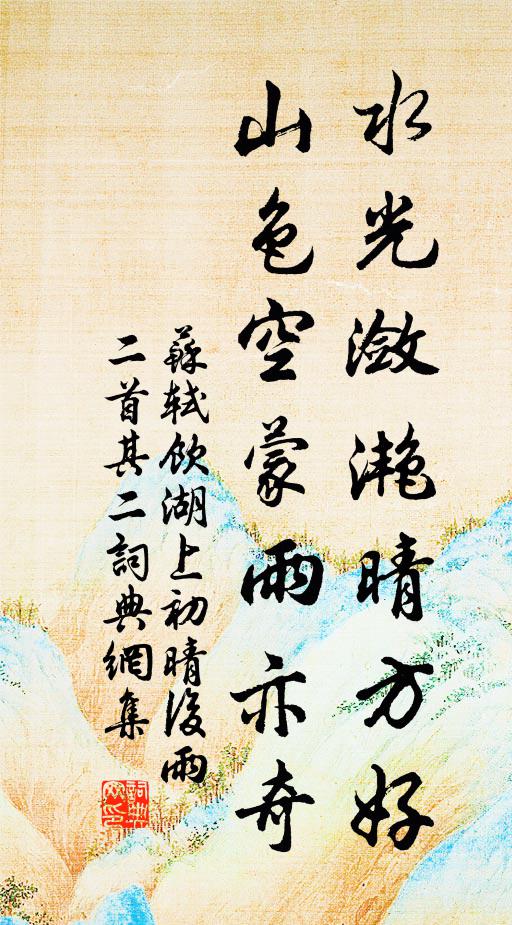 水光瀲灩晴方好
山色空蒙雨亦奇
蘇軾飲湖上初晴後雨
二首其二詞典網集